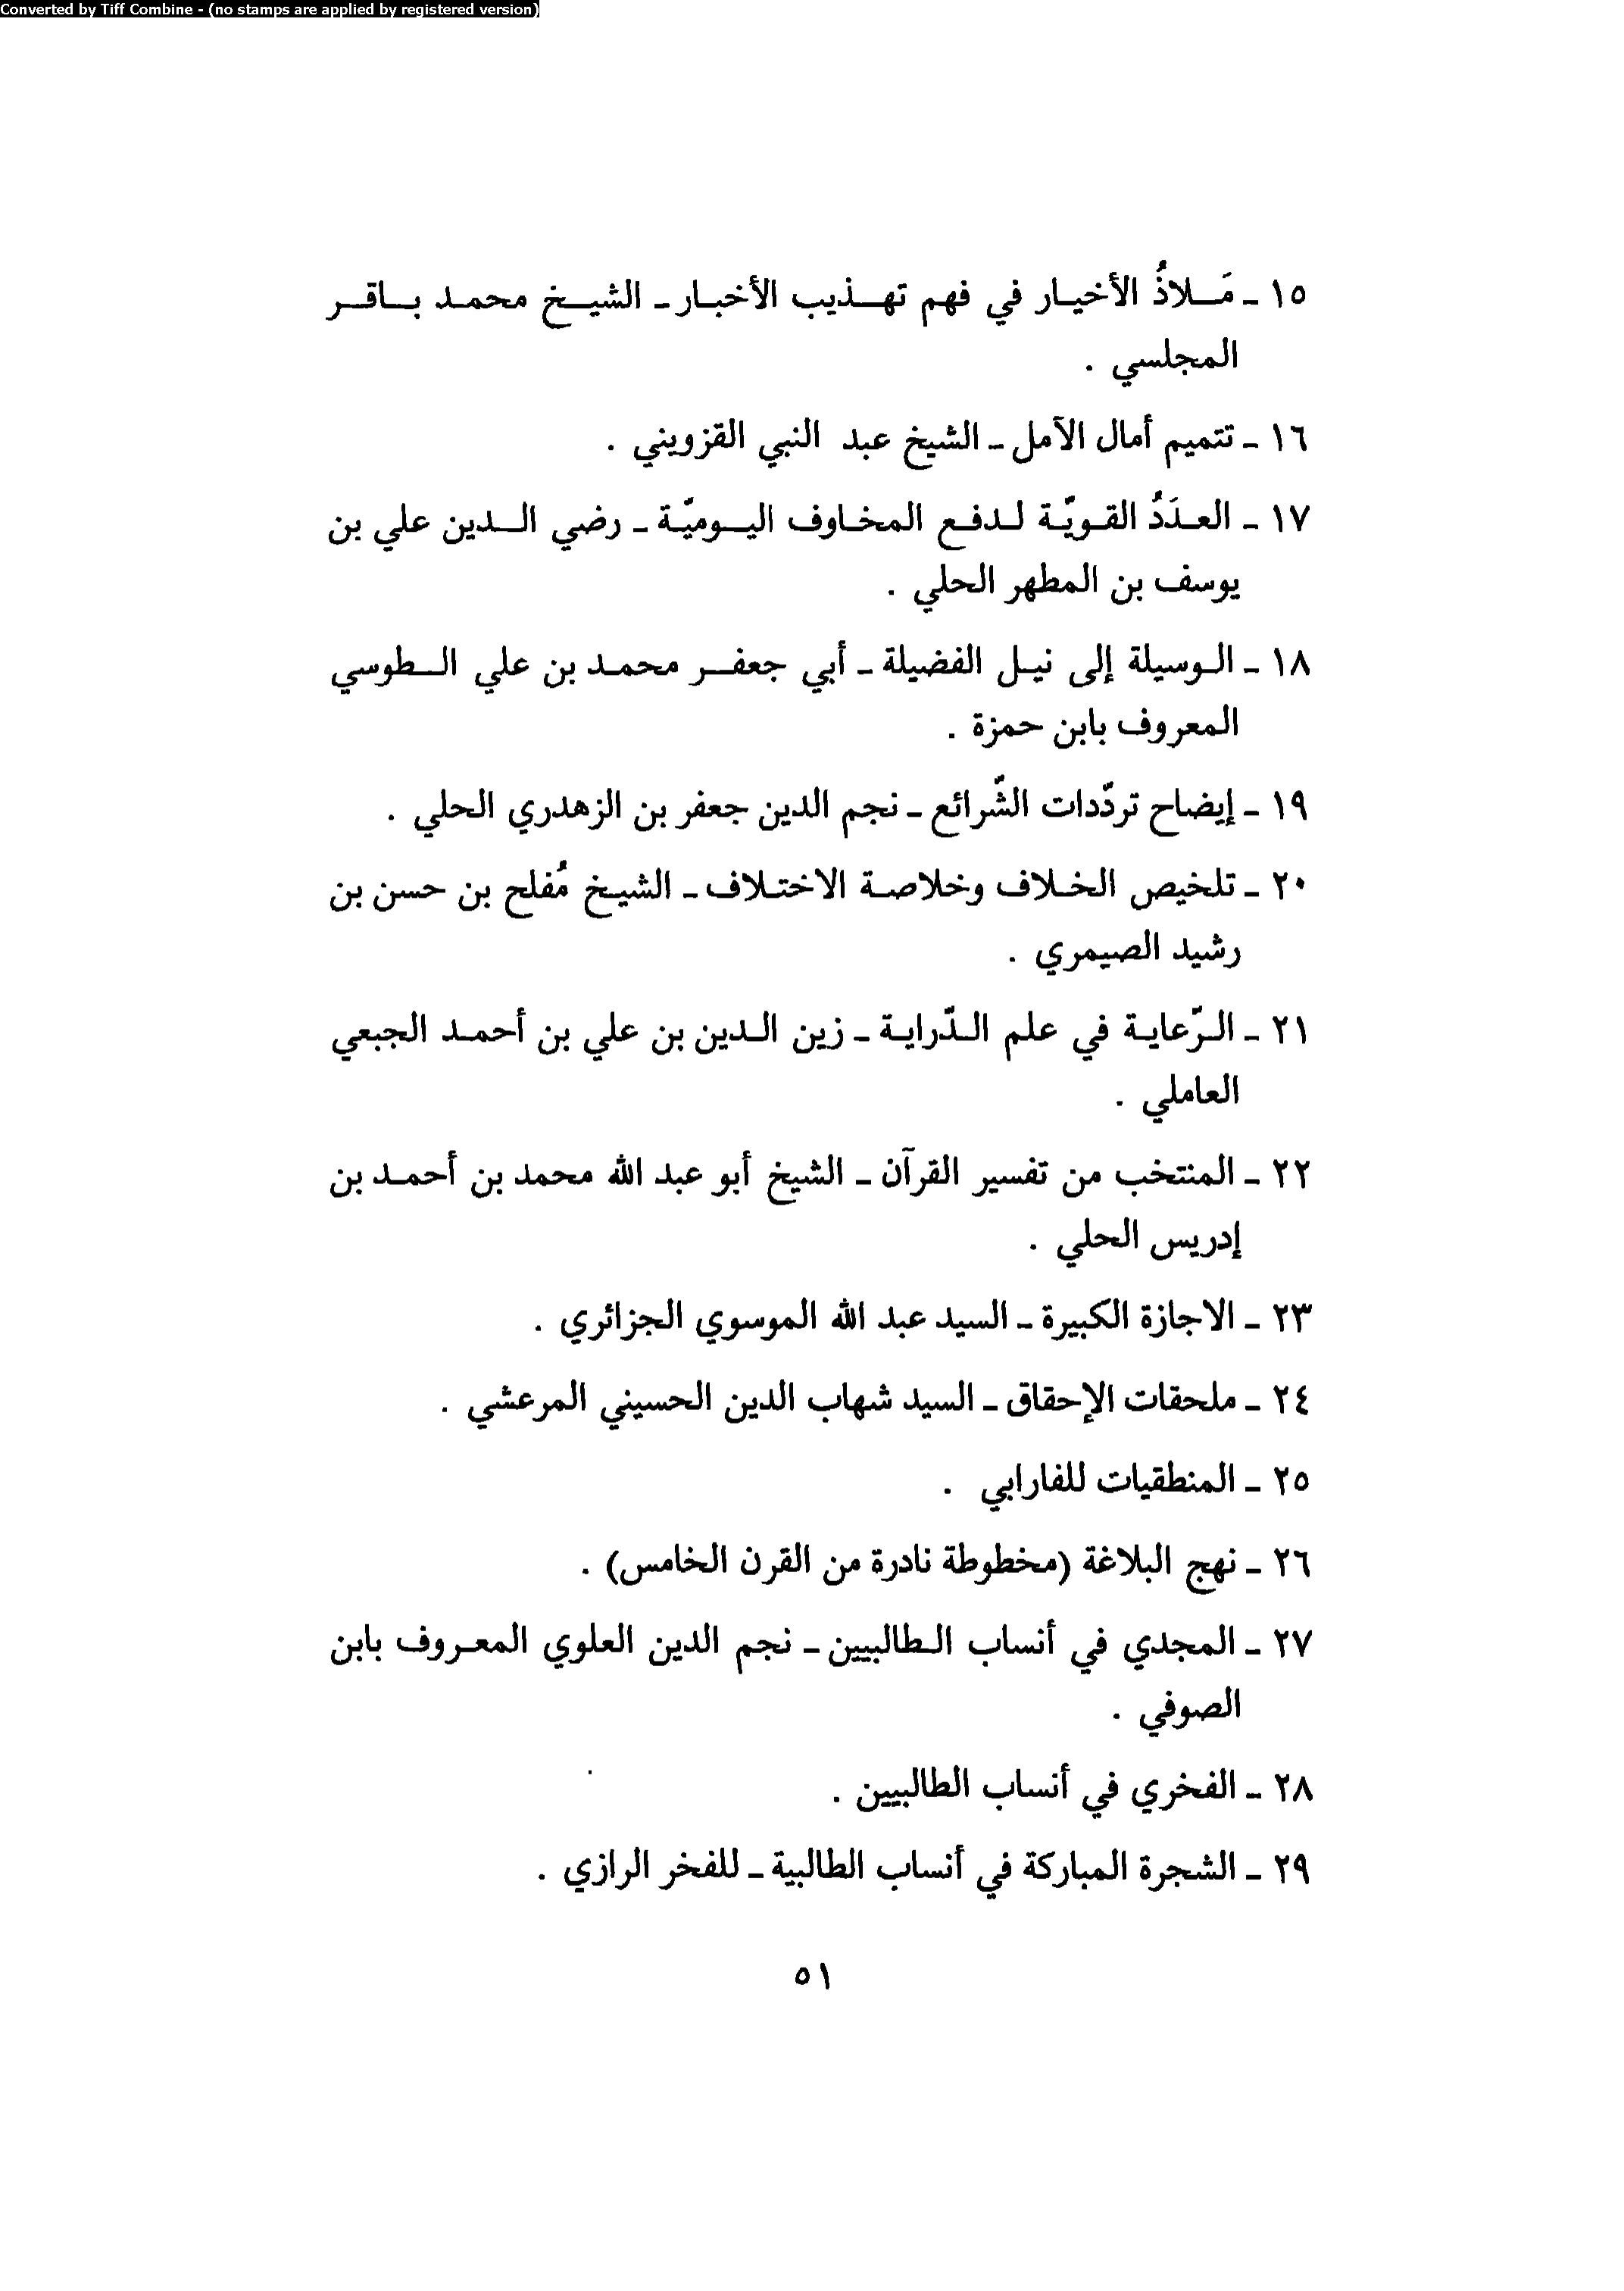 Converted by Tiff Combine - (no stamps are applied by registered version)
١٥ ـ مَلاذُ الأخيار في فهم تهذيب الأخبار ـ الشيخ محمد باقر
المجلسي .
١٦ ـ تتميم أمال الآمل ـ الشيخ عبد النبي القزويني .
١٧ ـ العدَدُ القويّة لدفع المخاوف اليوميّة ـ رضي الدين علي بن
يوسف بن المطهر الحلي .
١٨ ـ الوسيلة إلى نيل الفضيلة ـ أبي جعفر محمد بن علي الطوسي
المعروف بابن حمزة .
١٩ ـ إيضاح تردّدات الشّرائع ـ نجم الدين جعفر بن الزهدري الحلي .
٢٠ ـ تلخيص الخلاف وخلاصة الاختلاف ـ الشيخ مُفلح بن حسن بن
رشيد الصيمري .
٢١ ـ الرّعاية في علم الدّراية ـ زين الدين بن علي بن أحمد الجبعي
العاملي .
٢٢ ـ المنتخب من تفسير القرآن ـ الشيخ أبو عبد الله محمد بن أحمد بن
إدريس الحلي .
٢٣ ـ الاجازة الكبيرة ـ السيد عبد الله الموسوي الجزائري .
٢٤ ـ ملحقات الإحقاق ـ السيد شهاب الدين الحسيني المرعشي .
٢٥ ـ المنطقيات للفارابي .
٢٦ ـ نهج البلاغة (مخطوطة نادرة من القرن الخامس) .
٢٧ ـ المجدي في أنساب الطالبيين ـ نجم الدين العلوي المعروف بابن
الصوفي .
٢٨ ـ الفخري في أنساب الطالبيين .
٢٩ ـ الشجرة المباركة في أنساب الطالبية ـ للفخر الرازي .
٥١